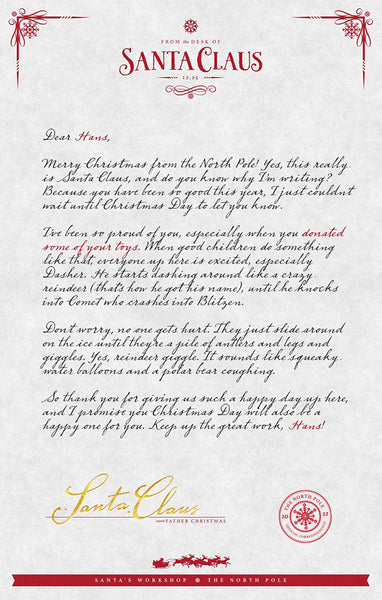 FROM the DESK OF
SANTA CLAUS
12.25
Dear Hans,
Merry Christmas from the North Pole! Yes, this really
is Santa Claus, and do you know why I'm writing?
Because you have been so good this year, I just couldnt
wait until Christmas Day to let you know.
I've been so proud of you, especially when you donated
some of your toys. When good children do something
like that, everyone up here is excited, especially
Dasher. He starts dashing around like a crazy
reindeer (thats how he got his name), until he knocks
into Comet who crashes into Blitzen.
Dont worry, no one gets hurt. They just slide around
on the ice until theyre a pile of antlers and legs and
giggles. Yes, reindeer giggle. It sounds like squeaky
water balloons and a polar bear coughing.
So thank you for giving us such a happy day up here,
and I promise you Christmas Day will also be a
happy one for you. Keep up the great work, Hans!
Santa Claus
FATHER CHRISTMAS
THE NORTH POLE
20 22
OFFICIAL CORRESPONDENCE
SANTA'S WORKSHOP THE NORTH POLE